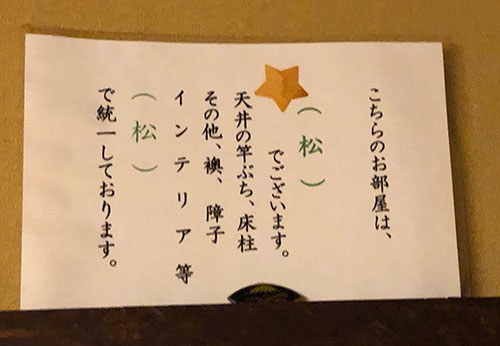 こちらのお部屋は、
（松）
でございます。
天井の竿ぶち、床柱
その他、襖、障子
インテリア等
（松）
で統一しております。